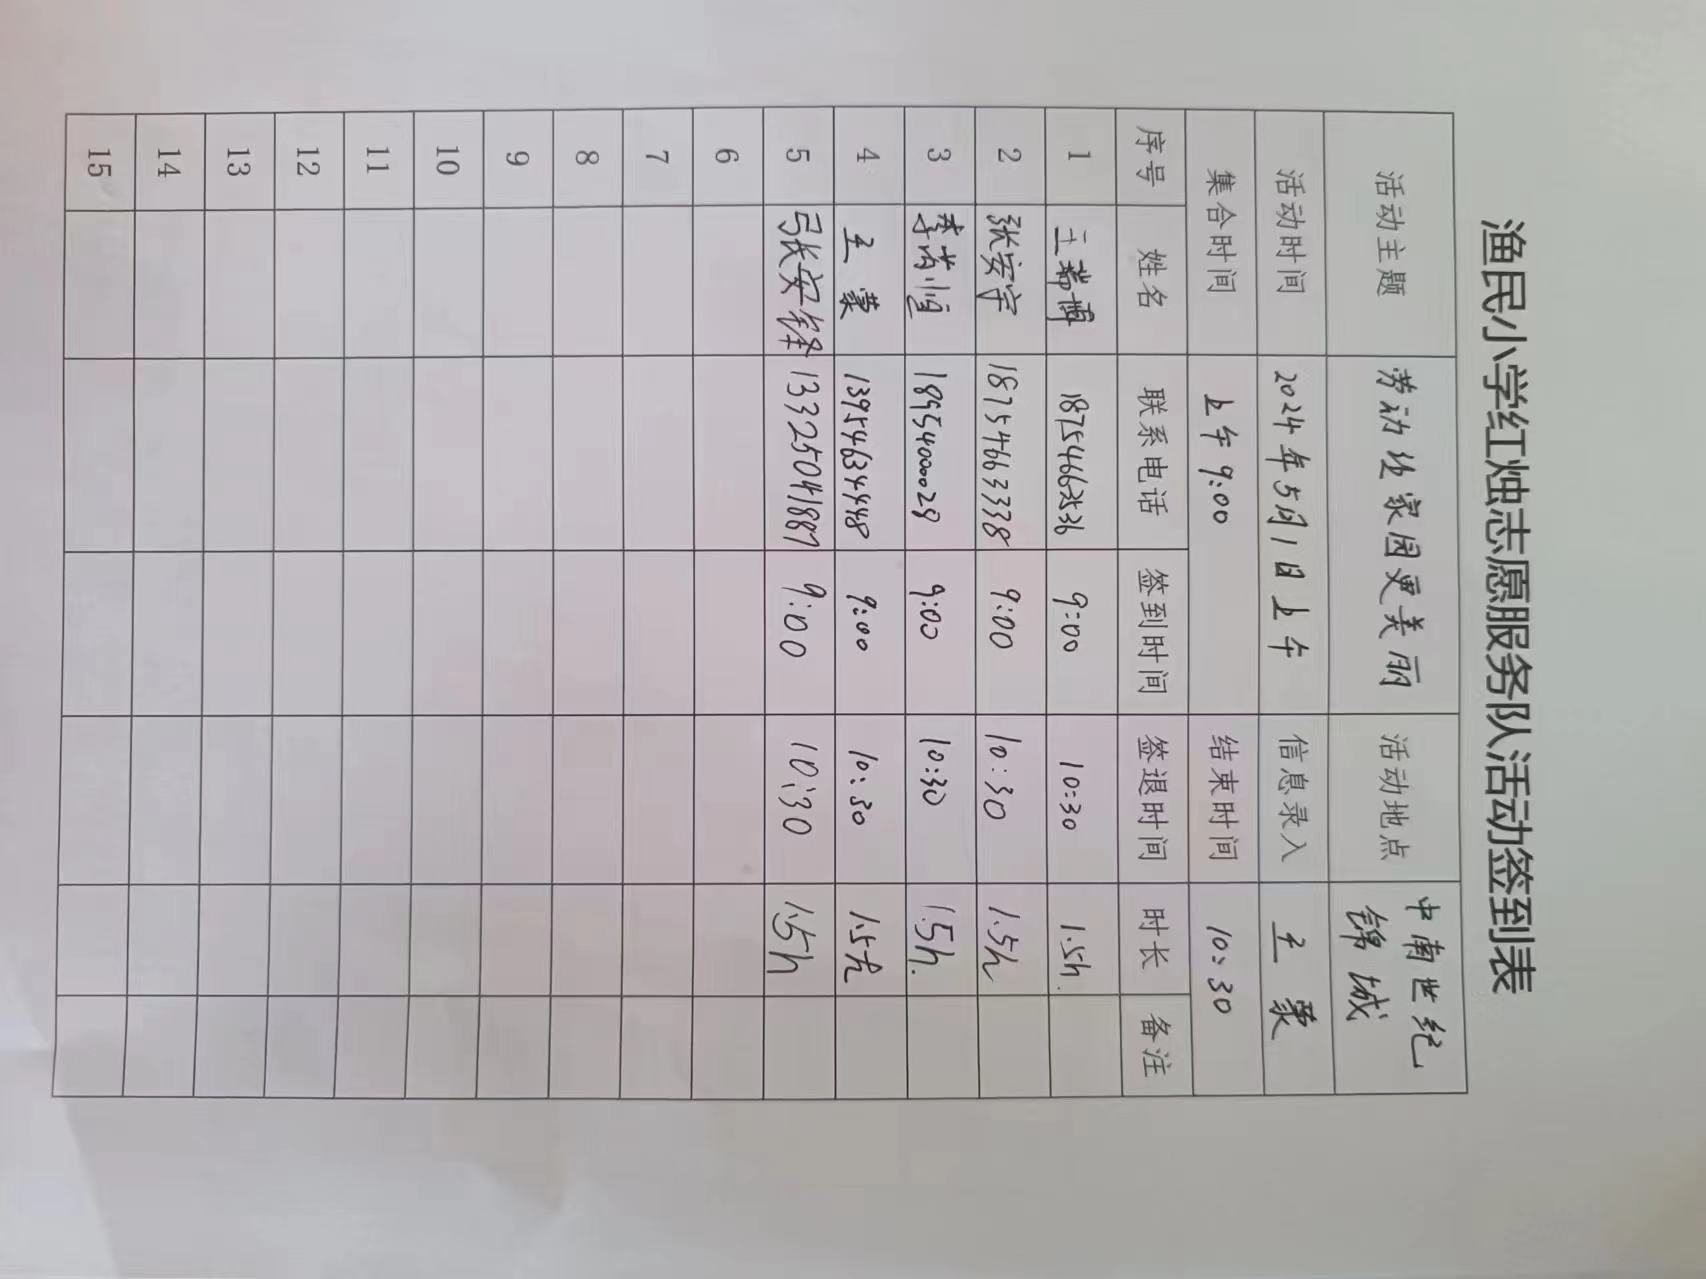 渔民小学红烛志愿服务队活动签到表
活动主题 劳动使家园更美丽 活动地点 中南世纪锦城
活动时间 2024年5月1日上午 信息录入 王蒙
集合时间 上午9:00 结束时间 10:30
序号 姓名 联系电话 签到时间 签退时间 时长 备注
1 王瑞博 18754663536 9:00 10:30 1.5h.
2 张安宇 18754663338 9:00 10:30 1.5h
3 18954000028 9:00 10:30 1.5h.
4 王蒙 13954634448 9:00 10:30 1.5h
5 张安铎 13325041887 9:00 10:30 1.5h
6
7
8
9
10
11
12
13
14
15